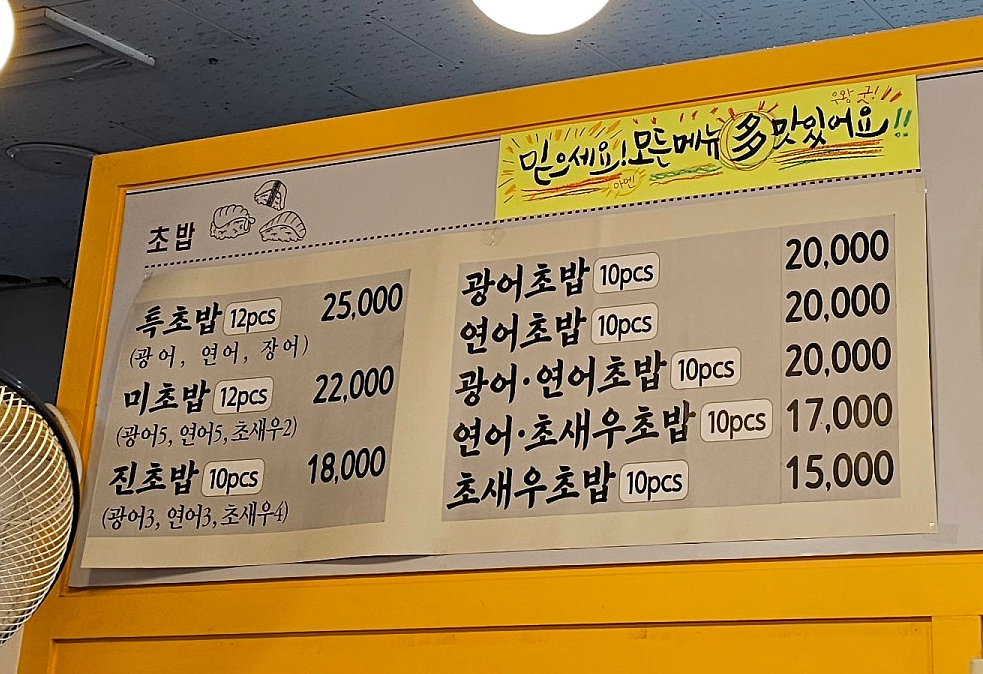 우왕 굿!
믿으세요! 모든메뉴 多 맛있어요!!
아멘
초밥
특초밥 12pcs 25,000
(광어, 연어, 장어)
미초밥 12pcs 22,000
(광어5, 연어5, 초새우2)
진초밥 10pcs 18,000
(광어3, 연어3, 초새우4)
광어초밥 10pcs 20,000
연어초밥 10pcs 20,000
광어·연어초밥 10pcs 20,000
연어·초새우초밥 10pcs 17,000
초새우초밥 10pcs 15,000